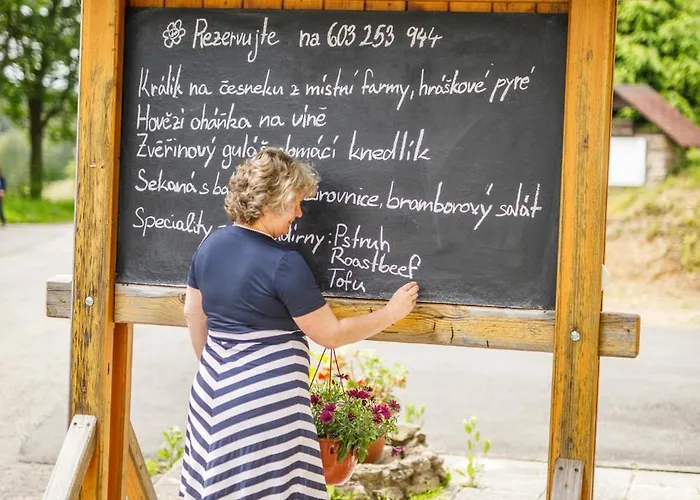 Rezervujte na 603 253 944
Králík na česneku z místní farmy, hráškové pyré
Hovězí oháňka na víně
Zvěřinový guláš, domácí knedlík
Sekaná s, bramborový salát
Speciality
Pstruh
Roastbeef
Tofu